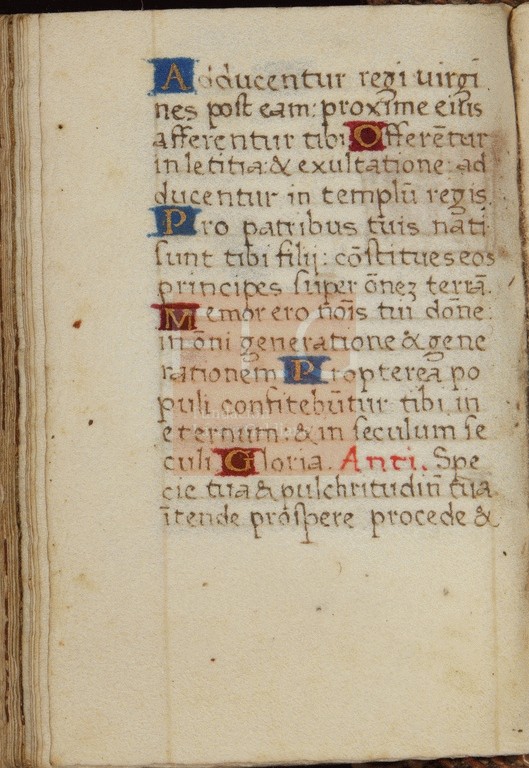 Adducentur regi virgi
nes post eam: proxime eius
afferentur tibi Offerētur
in letitia: & exultatione: ad
ducentur in templū regis.
Pro patribus tuis nati
sunt tibi filij: cōstitues eos
principes super ōnez terrā.
Memor ero nōis tui dōne:
in ōni generatione & gene
rationem Propterea po
puli confitebūtur tibi in
eternum: & in seculum se
culi. Gloria. Anti. Spe
cie tua & pulchritudin̄ tua
ītende prospere procede &